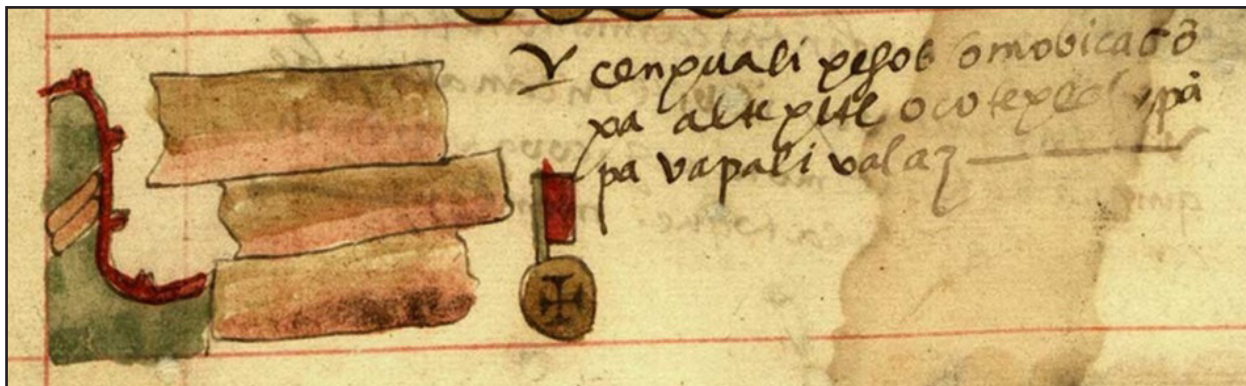 cenpuali pesos omovicac õ
pa altepetl ocotepec ypã
pa vapali valaz